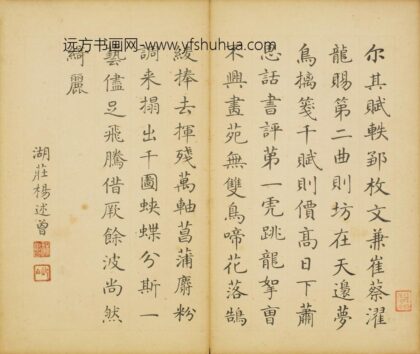 远方书画网-www.yfshuhua.com
尔其賦軼鄴枚文兼崔蔡濯
龍賜第二曲則坊在天邊夢
鳥摛箋千賦則價高日下蕭
思話書評第一虎跳龍拏曹
不興畫苑無雙鳥啼花落鵠
綾捧去揮殘萬軸菖蒲麝粉
調来搨出千圖蛺蝶分斯一
藝儘足飛騰借厥餘波尚然
綺麗
湖莊楊述曾